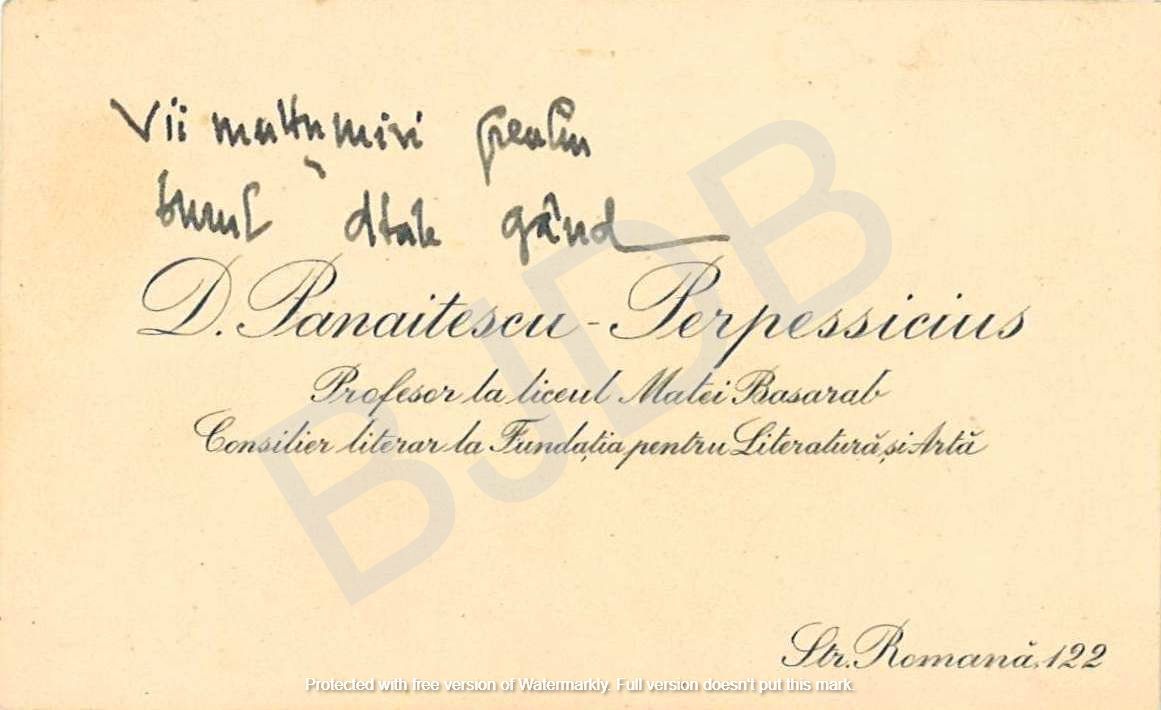 Vii multumiri pentru
bunul dtale gând
D. Panaitescu-Perpessicius
Profesor la liceul Matei Basarab
Consilier literar la Fundația pentru Literatură și Artă
Str. Romană, 122
BJDB
Protected with free version of Watermarkly. Full version doesn't put this mark.